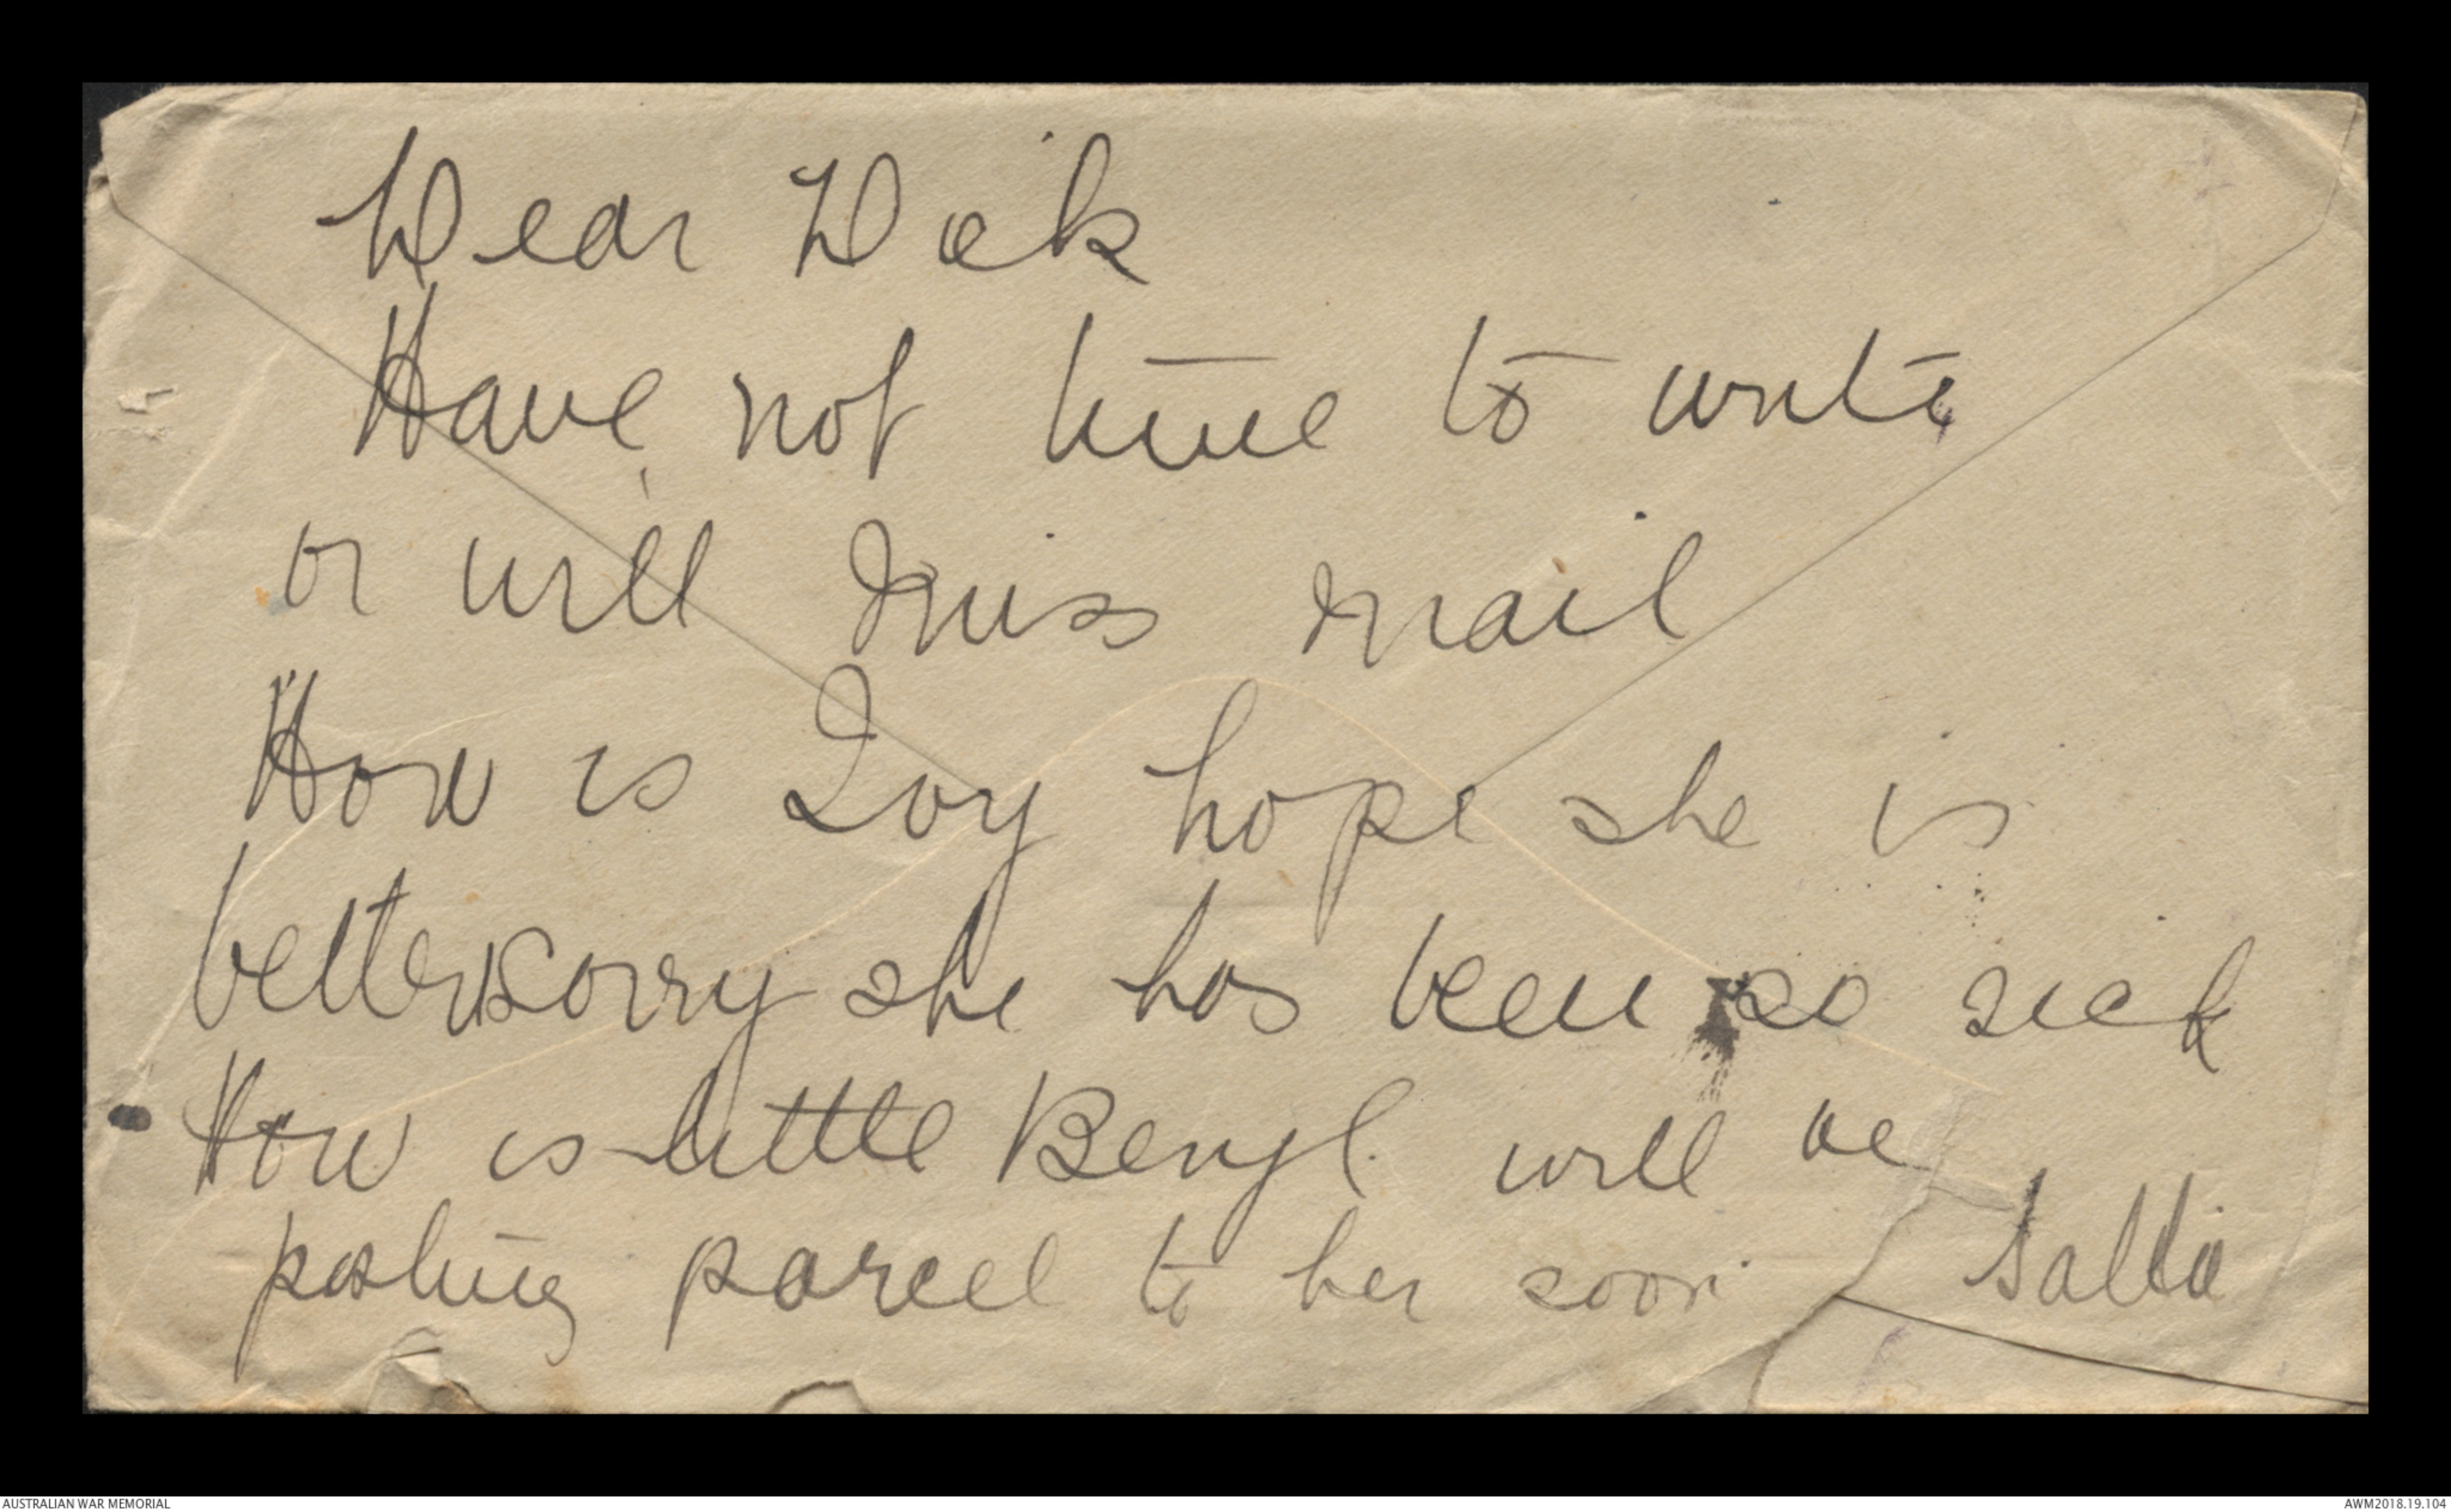 Dear Dick
Have not time to write
or will miss mail
How is Ivy hope she is
better sorry she has been so sick
How is little Beryl. will be
posting parcel to her soon
AUSTRALIAN WAR MEMORIAL
AWM2018.19.104